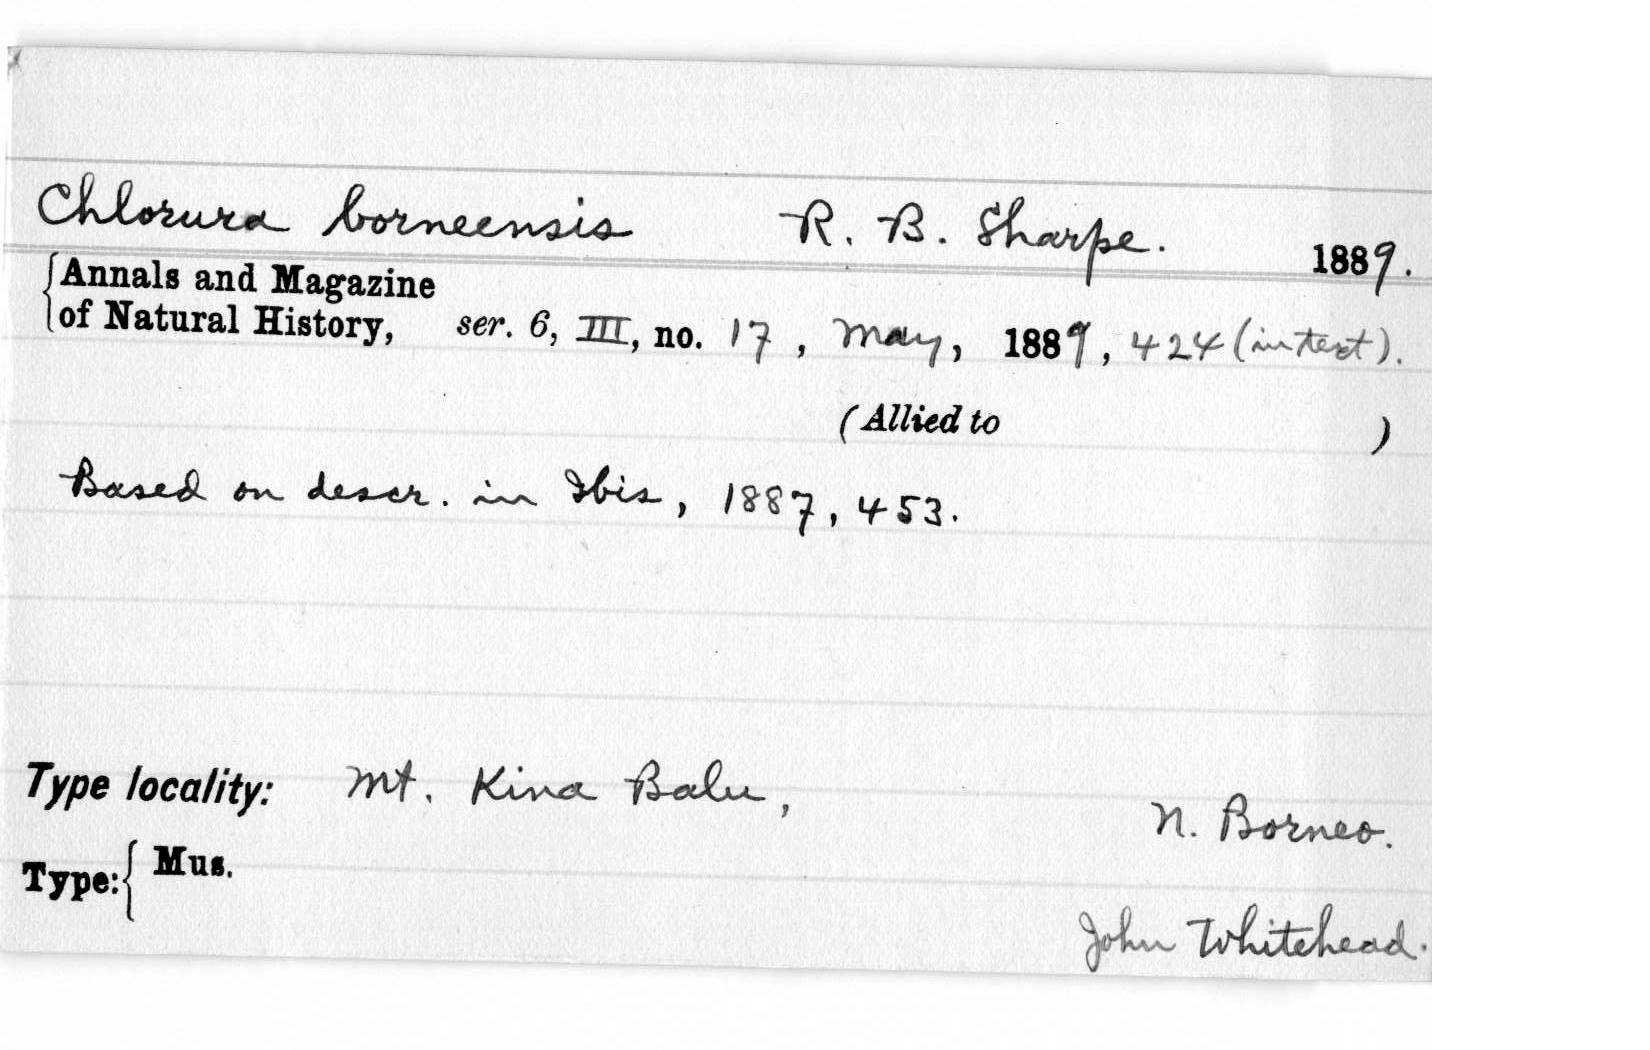 Chlorura borneensis R. B. Sharpe. 1889.
Annals and Magazine
of Natural History, ser. 6, III, no. 17, May, 1889, 424 (in text).
(Allied to )
Based on descr. in Ibis, 1887, 453.
Type locality: Mt. Kina Balu, N. Borneo.
Type: Mus.
John Whitehead.